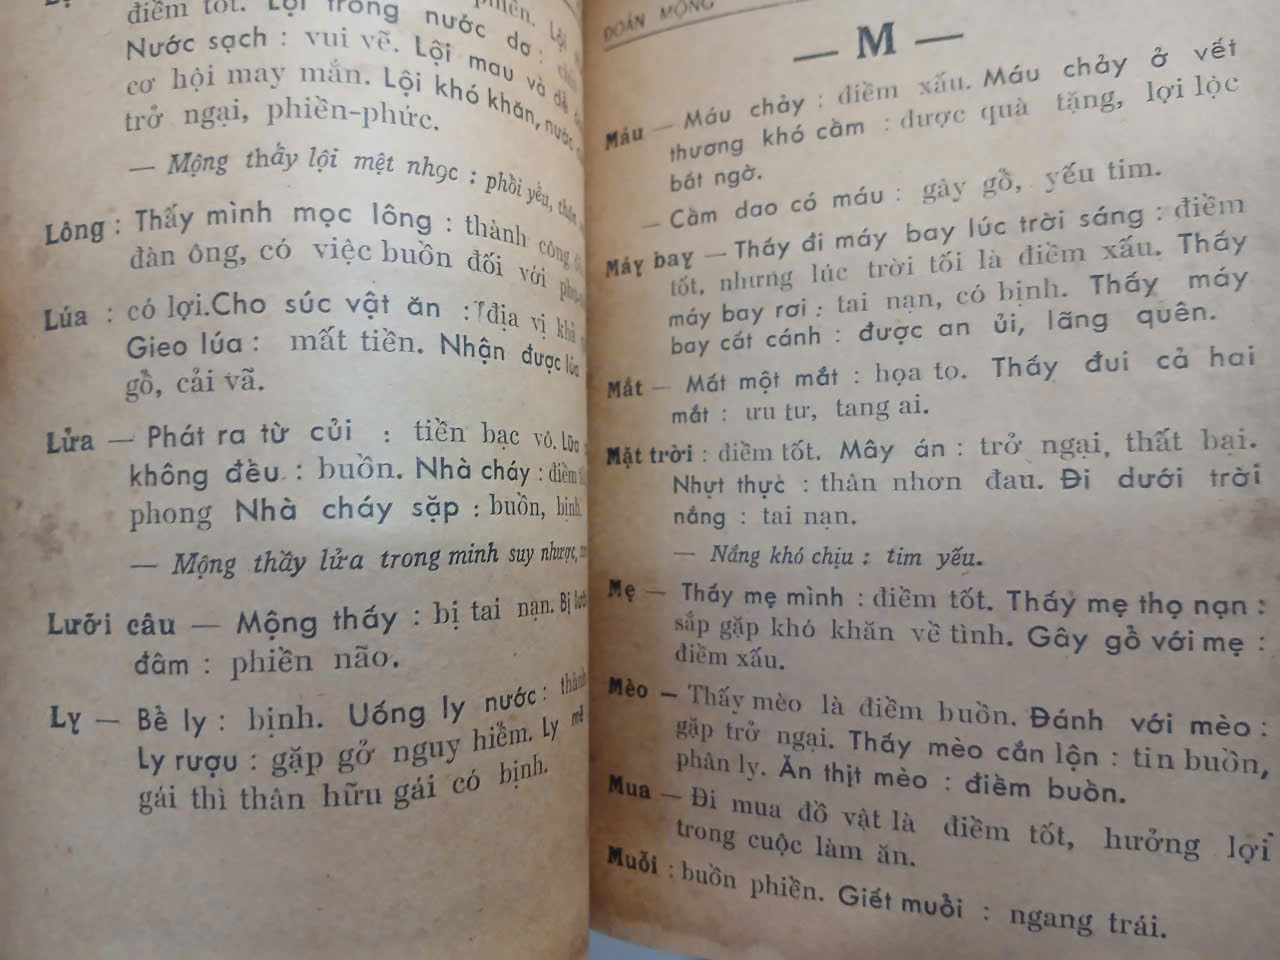 điềm tốt. Lội trong nước dơ :
Nước sạch : vui vẽ. Lội mau và dễ
cơ hội may mắn. Lội khó khăn, nước
trở ngại, phiền-phức.
— Mộng thấy lội mệt nhọc : phồi yếu,
Lông : Thấy mình mọc lông : thành công
đàn ông, có việc buồn đối với
Lúa : có lợi.Cho súc vật ăn : địa vị khá
Gieo lúa : mất tiền. Nhận được lúa
gồ, cải vã.
Lửa — Phát ra từ củi : tiền bạc vô. Lửa
không đều : buồn. Nhà cháy : điềm
phong Nhà cháy sặp : buồn, bịnh.
— Mộng thầy lửa trong minh suy nhược,
Lưỡi câu — Mộng thấy : bị tai nạn. Bị lưỡi
đâm : phiền não.
Ly — Bề ly : bịnh. Uống ly nước : thành
Ly rượu : gặp gở nguy hiểm. Ly mẻ
gái thì thân hữu gái có bịnh.
ĐOÁN MỘNG
— M —
Máu — Máu chảy : điềm xấu. Máu chảy ở vết
thương khó cầm : được quà tặng, lợi lộc
bất ngờ.
— Cầm dao có máu : gây gổ, yếu tim.
Máy bay — Thấy đi máy bay lúc trời sáng : điềm
tốt, nhưng lúc trời tối là điềm xấu. Thấy
máy bay rơi : tai nạn, có bịnh. Thấy máy
bay cất cánh : được an ủi, lãng quên.
Mắt — Mất một mắt : họa to. Thấy đui cả hai
mắt : ưu tư, tang ai.
Mặt trời : điềm tốt. Mây án : trở ngại, thất bại.
Nhựt thực : thân nhơn đau. Đi dưới trời
nắng : tai nạn.
— Nắng khó chịu : tim yếu.
Mẹ — Thấy mẹ mình : điềm tốt. Thấy mẹ thọ nạn :
sắp gặp khó khăn về tình. Gây gổ với mẹ :
điềm xấu.
Mèo — Thấy mèo là điềm buồn. Đánh với mèo :
gặp trở ngại. Thấy mèo cắn lộn : tin buồn,
phân ly. Ăn thịt mèo : điềm buồn.
Mua — Đi mua đồ vật là điềm tốt, hưởng lợi
trong cuộc làm ăn.
Muỗi : buồn phiền. Giết muỗi : ngang trái.